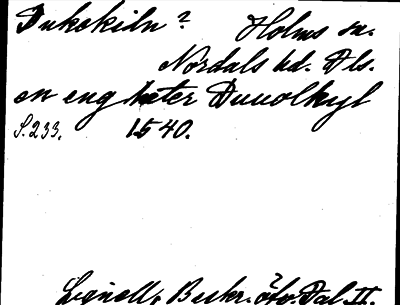 Dukekiln? Holms sn.
Nordals hd. Dls.
en eng heter Duuolkyl
S. 233. 1540.
Lignell, Beskr. öfv. Dal II.